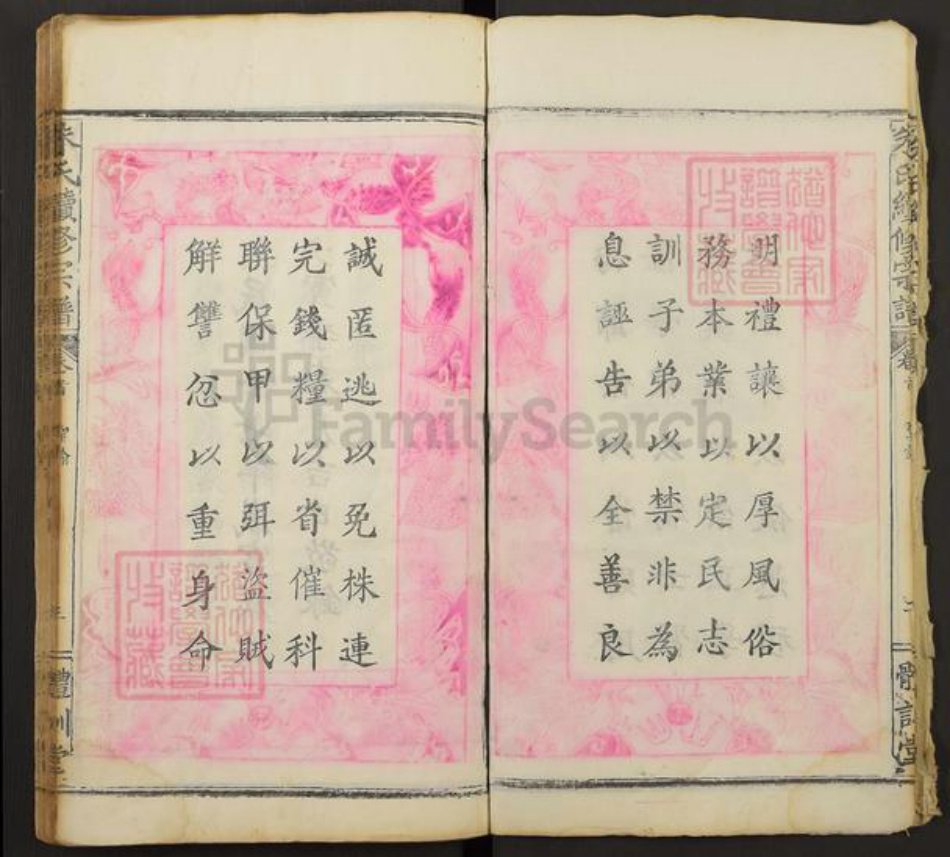 明禮讓以厚風俗
務本業以定民志
訓子弟以禁非為
息誣告以全善良
誠匿逃以免株連
完錢糧以省催科
聯保甲以弭盜賊
解讐忿以重身命
朱氏續修宗譜
禮訓堂
FamilySearch